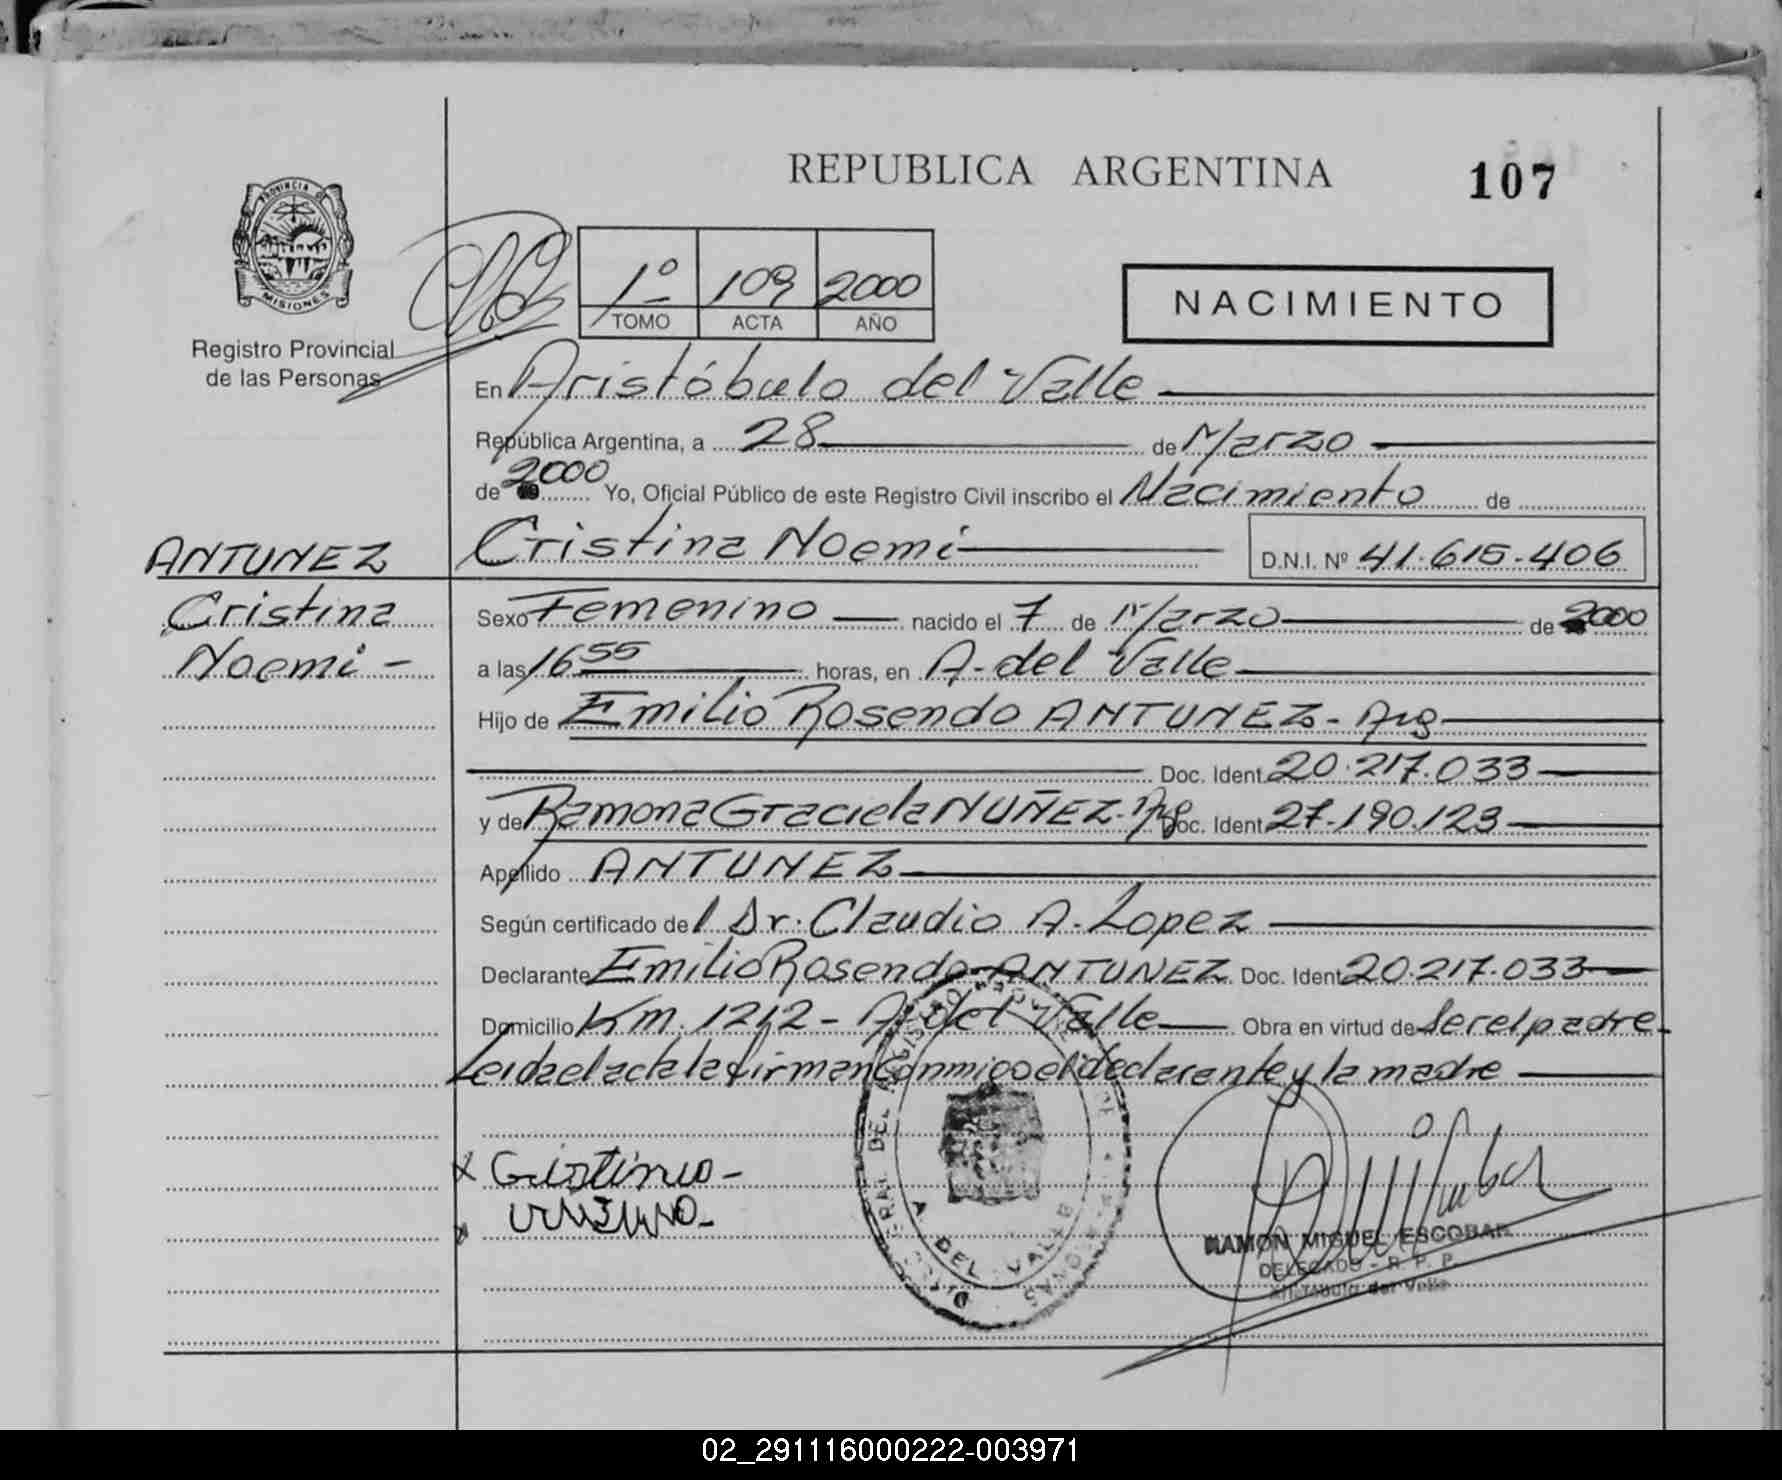 REPUBLICA ARGENTINA
107
PROVINCIA DE
MISIONES
Registro Provincial
de las Personas
1º 109 2000
TOMO ACTA AÑO
NACIMIENTO
En Aristóbulo del Valle
República Argentina, a 28 de Marzo
de 2000 Yo, Oficial Público de este Registro Civil inscribo el Nacimiento de
Cristina Noemi D.N.I. Nº 41.615.406
ANTUNEZ
Cristina
Noemi -
Sexo Femenino nacido el 7 de Marzo de 2000
a las 16 55 horas, en A. del Valle
Hijo de Emilio Rosendo ANTUNEZ - Arg
Doc. Ident. 20.217.033
y de Ramona Graciela NUÑEZ - Arg Doc. Ident. 27.190.123
Apellido ANTUNEZ
Según certificado del Dr. Claudio A. Lopez
Declarante Emilio Rosendo ANTUNEZ Doc. Ident. 20.217.033
Domicilio Km. 1212 - A. del Valle Obra en virtud de Ser el padre
Leida el acta la firman conmigo el declarante y la madre
A. DEL VALLE
RAMON MIGUEL ESCOBAR
DELEGADO - R. P. P.
Aristobulo del Valle
02_291116000222-003971